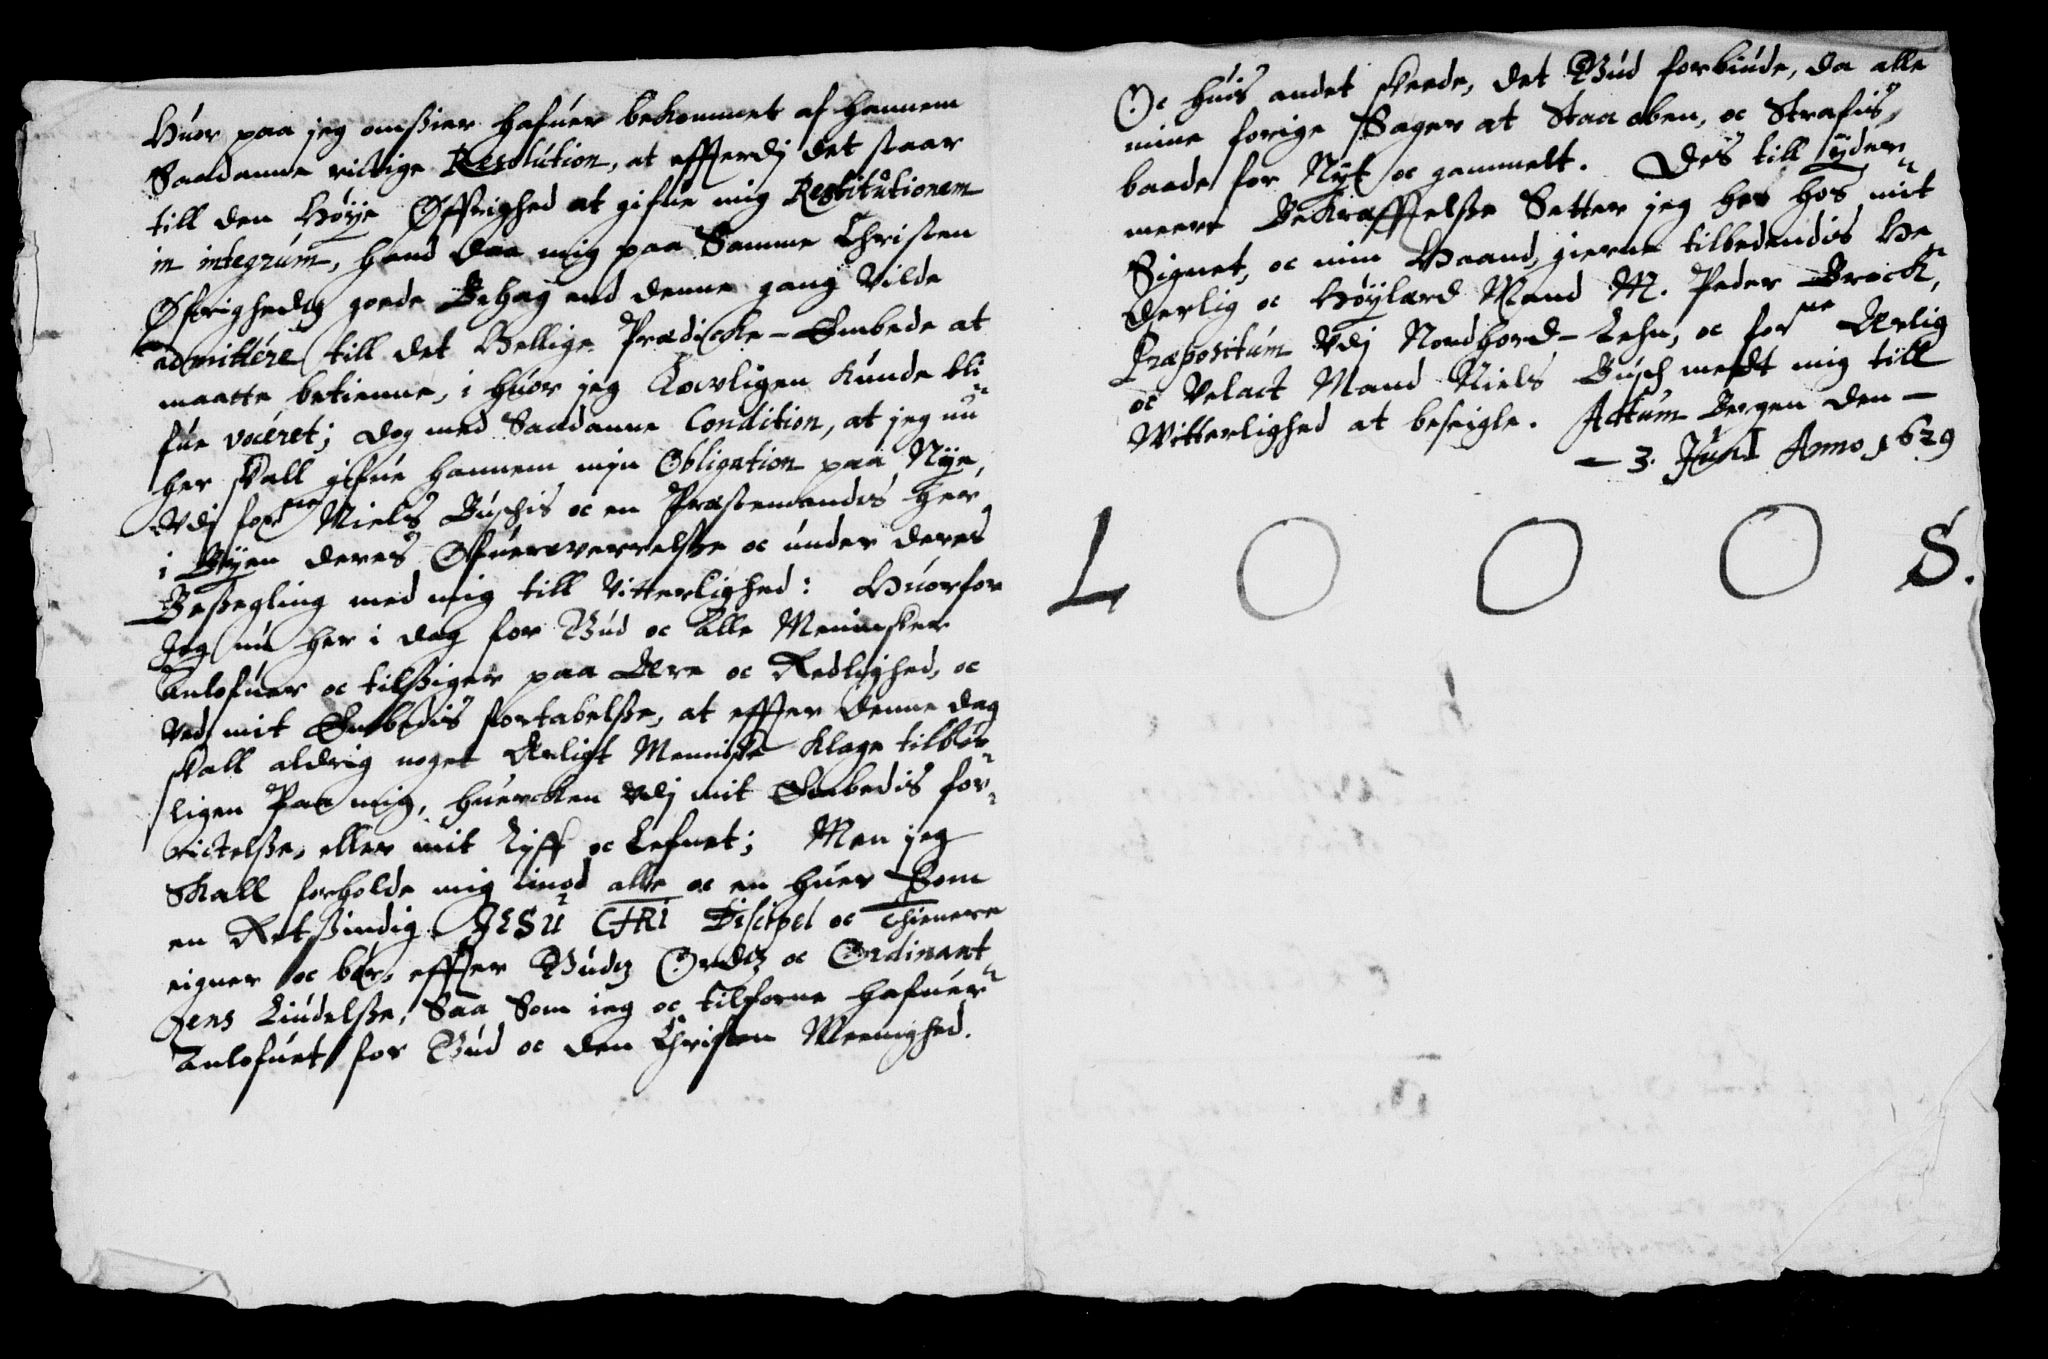 Huor paa jeg omsier hafuer bekommet af hannem
Saadanne rictige Resolution, at effterdj det staar
till den Høÿe Øffrighed at gifue mig Restitutionem
in integrum, hand daa mig paa Samme Christen
Øfrighedz goede Behag end denne gang Vilde
admittére till det Hellige Prædicke-Embede at
maatte betienne, i huor jeg Lovligen Kunde bli-
fue vocéret; dog med Saadanne Condition, at jeg nu
her skall gifue hannem mÿn Obligation paa Nÿe,
Vdj forne Niels Buschis oc en Præstemandes her
i Bÿen deres Ofueruerrelße oc under deres
Beßegling med mig till Vitterlighed: Huorfor
Jeg nu her i dag for Gud oc alle Menisker
Anlofuer oc tilßiger paa Ære oc Redlighed, oc
Ved mit Embedis fortabelße, at effter denne dag
skall aldrig noget Ærligt Meniske Klage tilbør-
ligen Paa mig, huercken vdj mit Embedis for-
rictelße, eller mit Lÿff oc Lefnet; Men jeg
Skall forholde mig imod alle oc en huer Som
en Retsindig JESU CHRI Discipel oc Thienere
eigner oc bør, effter Gudz Ordz oc Ordinant-
zens Liudelße, Saa Som ieg oc tilforne hafuer
Anlofuet for Gud oc den Christen Meenighed.
Oc huis andet skeede, det Gud forbiude, da alle
mine forige Sager at Staa aben, oc Strafis,
baade for Nÿt oc gammelt. Des till ÿder-
meere Bekræfftelße Setter jeg her hos mit
Signet, oc min Haand, gierne tilbedendis He-
derlig oc Høÿlærd Mand M. Peder Brock,
Præpositum Vdj Nordhord-Lehn, oc forne Ærlig
oc Velact Mand Niels Busch medt mig till
Witterlighed at beseigle. Actum Bergen den —
— 3. Junÿ Anno 1629
L O O O S.